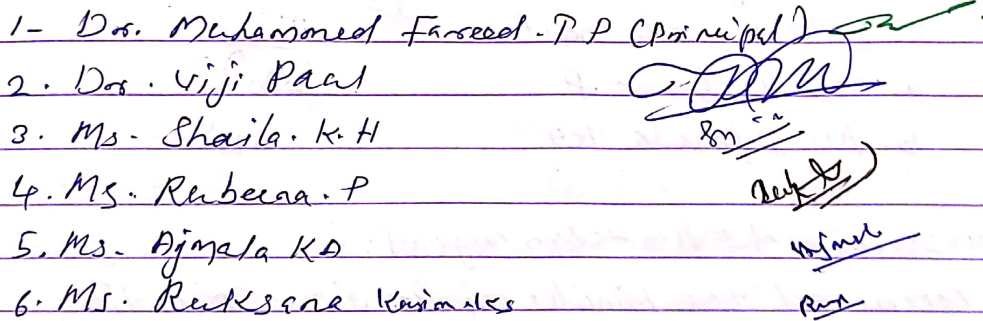 1- Dr. Muhammed Fareed. T P (Principal)
2. Dr. Viji Paul
3. Ms. Shaila. K. H
4. Ms. Rubeena. P
5. Ms. Ajmala KA
6. Ms. Ruksana